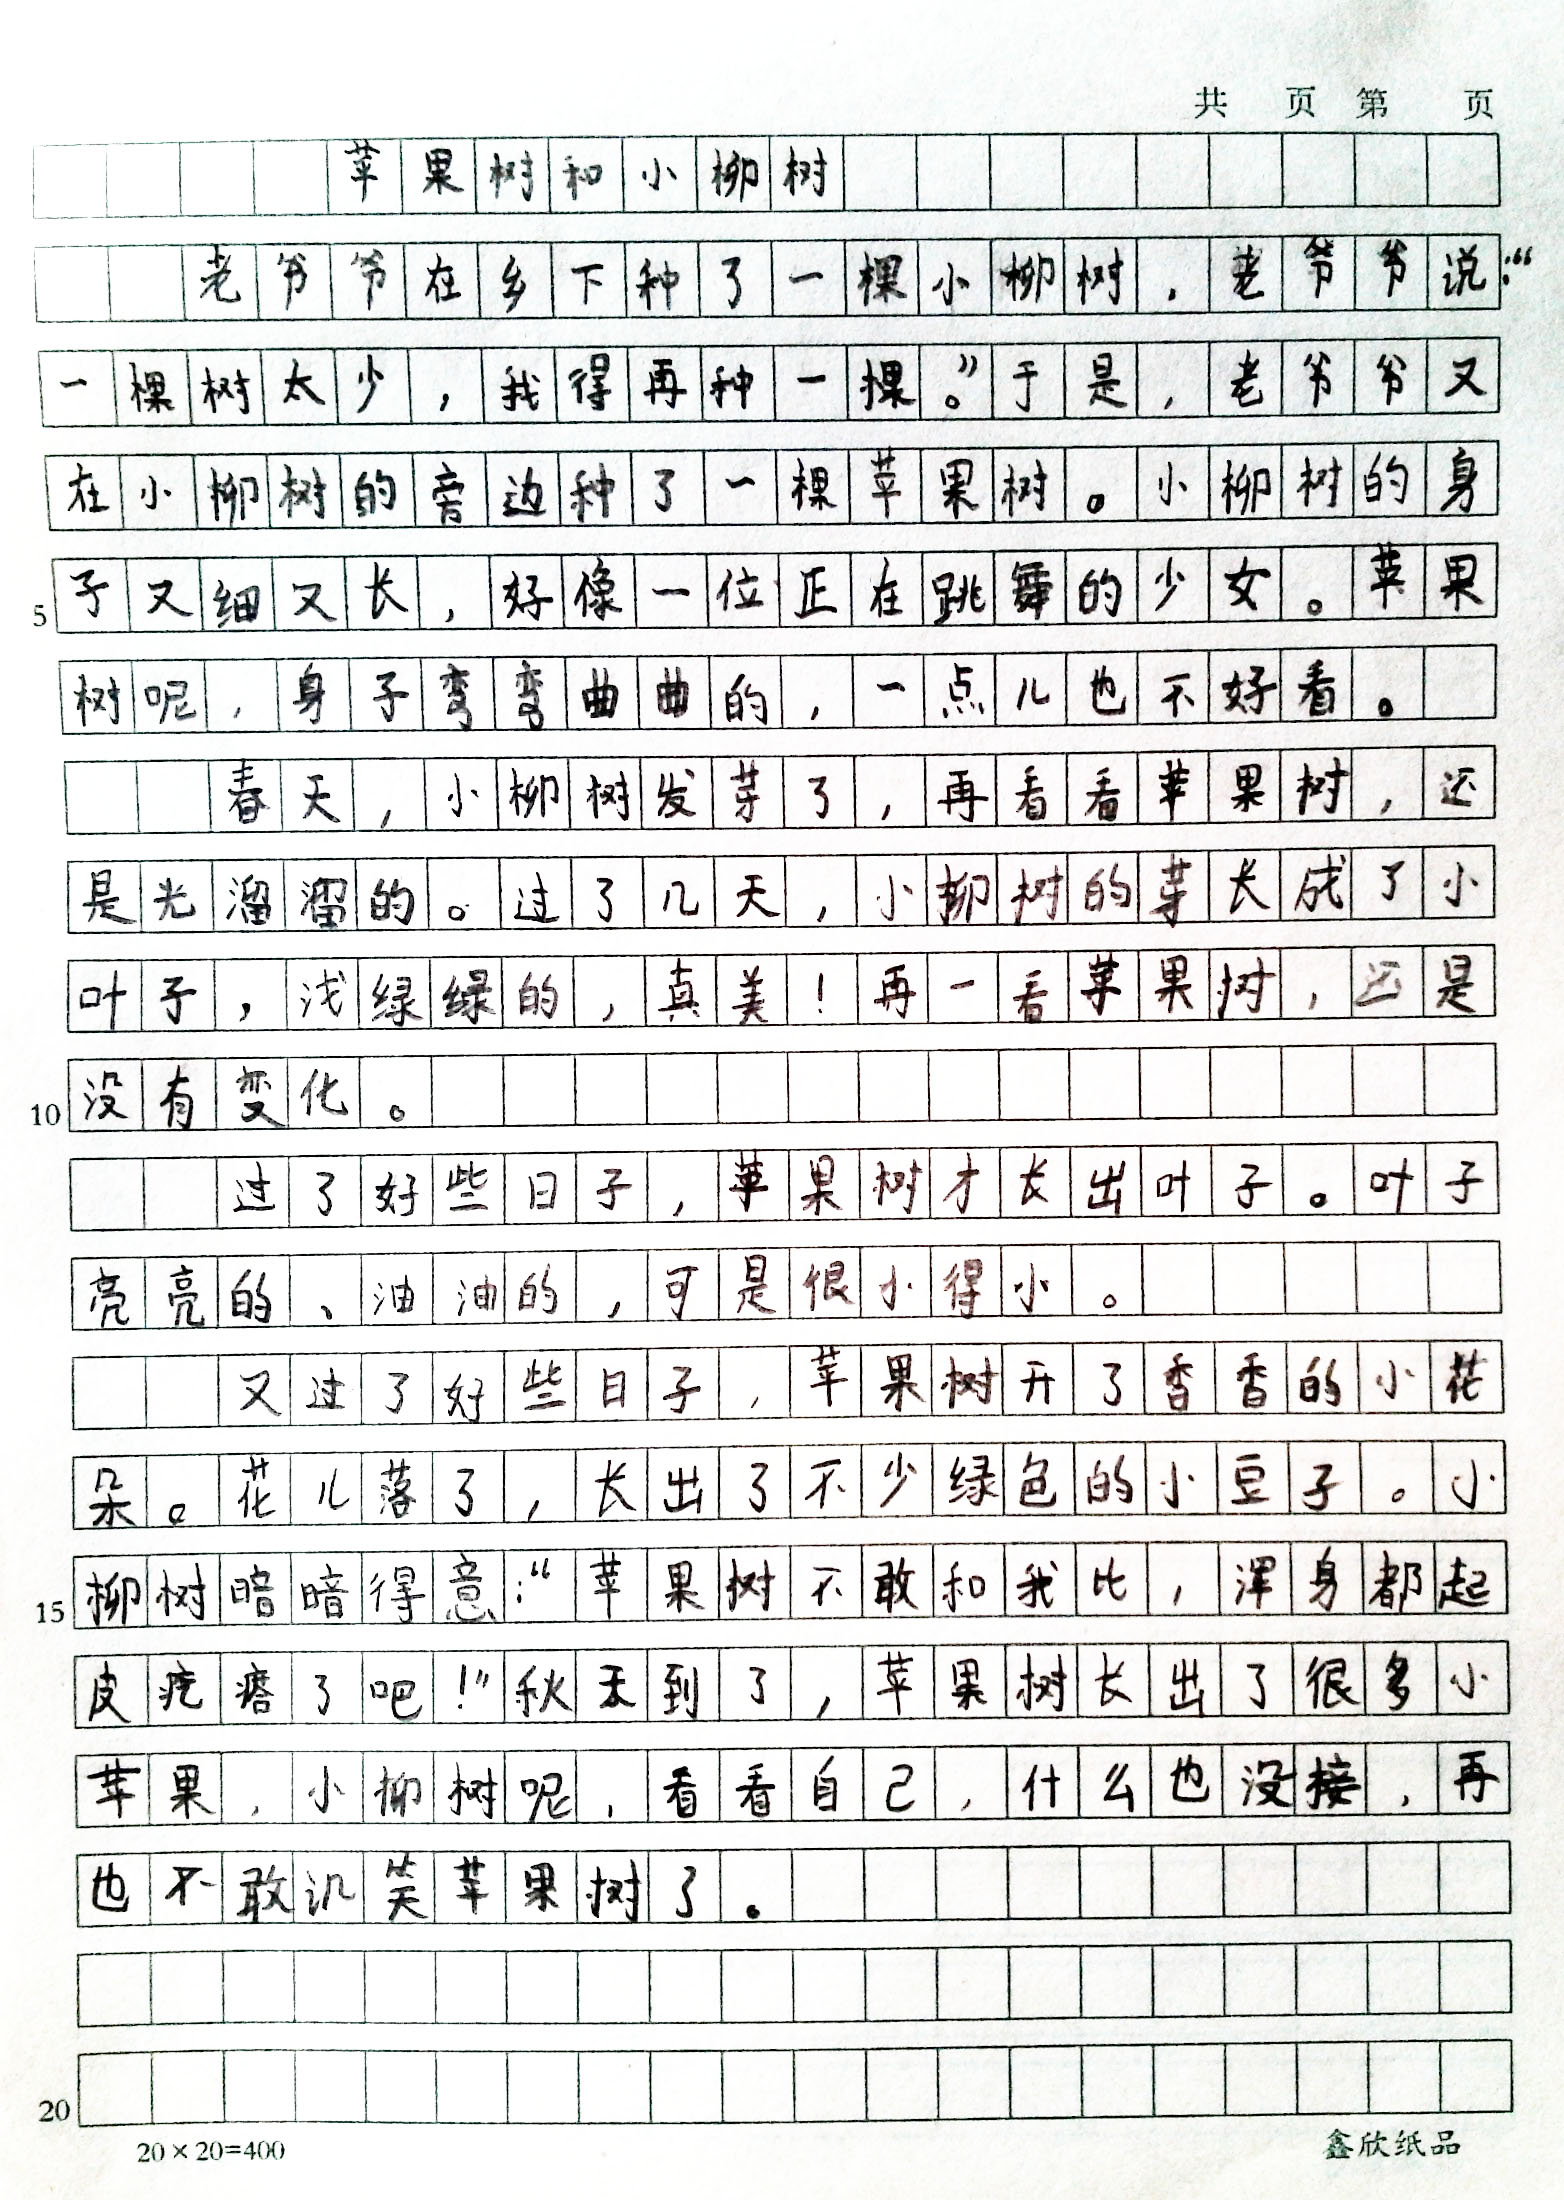 共 页 第 页
苹果树和小柳树
老爷爷在乡下种了一棵小柳树，老爷爷说：“
一棵树太少，我得再种一棵。”于是，老爷爷又
在小柳树的旁边种了一棵苹果树。小柳树的身
5 子又细又长，好像一位正在跳舞的少女。苹果
树呢，身子弯弯曲曲的，一点儿也不好看。
春天，小柳树发芽了，再看看苹果树，还
是光溜溜的。过了几天，小柳树的芽长成了小
叶子，浅绿绿的，真美！再一看苹果树，还是
10 没有变化。
过了好些日子，苹果树才长出叶子。叶子
亮亮的、油油的，可是很小得小。
又过了好些日子，苹果树开了香香的小花
朵。花儿落了，长出了不少绿色的小豆子。小
15 柳树暗暗得意：“苹果树不敢和我比，浑身都起
皮疙瘩了吧！”秋天到了，苹果树长出了很多小
苹果，小柳树呢，看看自己，什么也没接，再
也不敢讥笑苹果树了。
20
20×20=400 鑫欣纸品